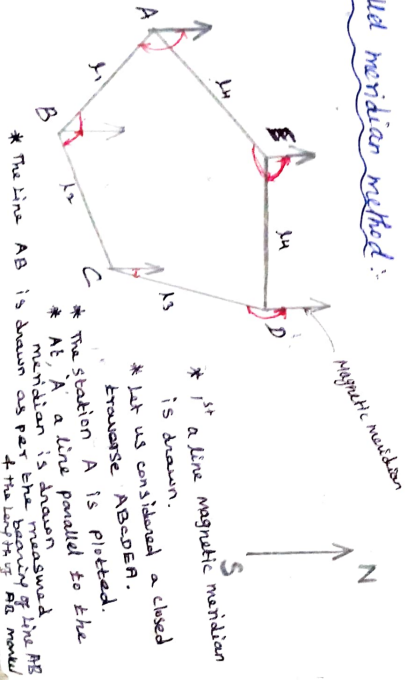 lled meridian method:-
A
B
C
D
E
l1
l2
l3
l4
l4
Magnetic meridian
N
S
* 1st a line magnetic meridian
is drawn.
* Let us considered a closed
traverse ABCDEA.
* The station A is plotted.
* At, A a line parallel to the
meridian is drawn
* The Line AB is drawn as per the measured
bearing of line AB
& the length of AB marked